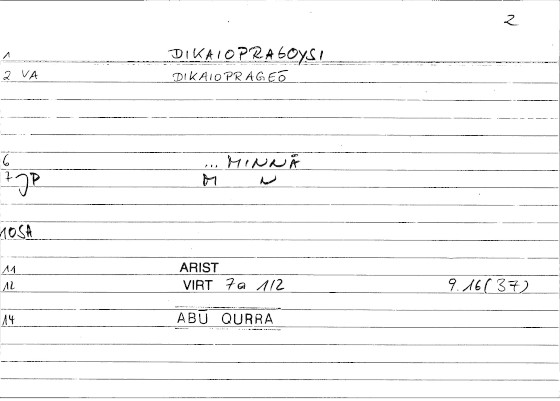 2
1 DIKAIOPRAGOYSI
2 VA DIKAIOPRAGEŌ
6 ... MINNĀ
7 JP M N
10 SA
11 ARIST
12 VIRT 7a 1/2 9.16(37)
14 ABŪ QURRA